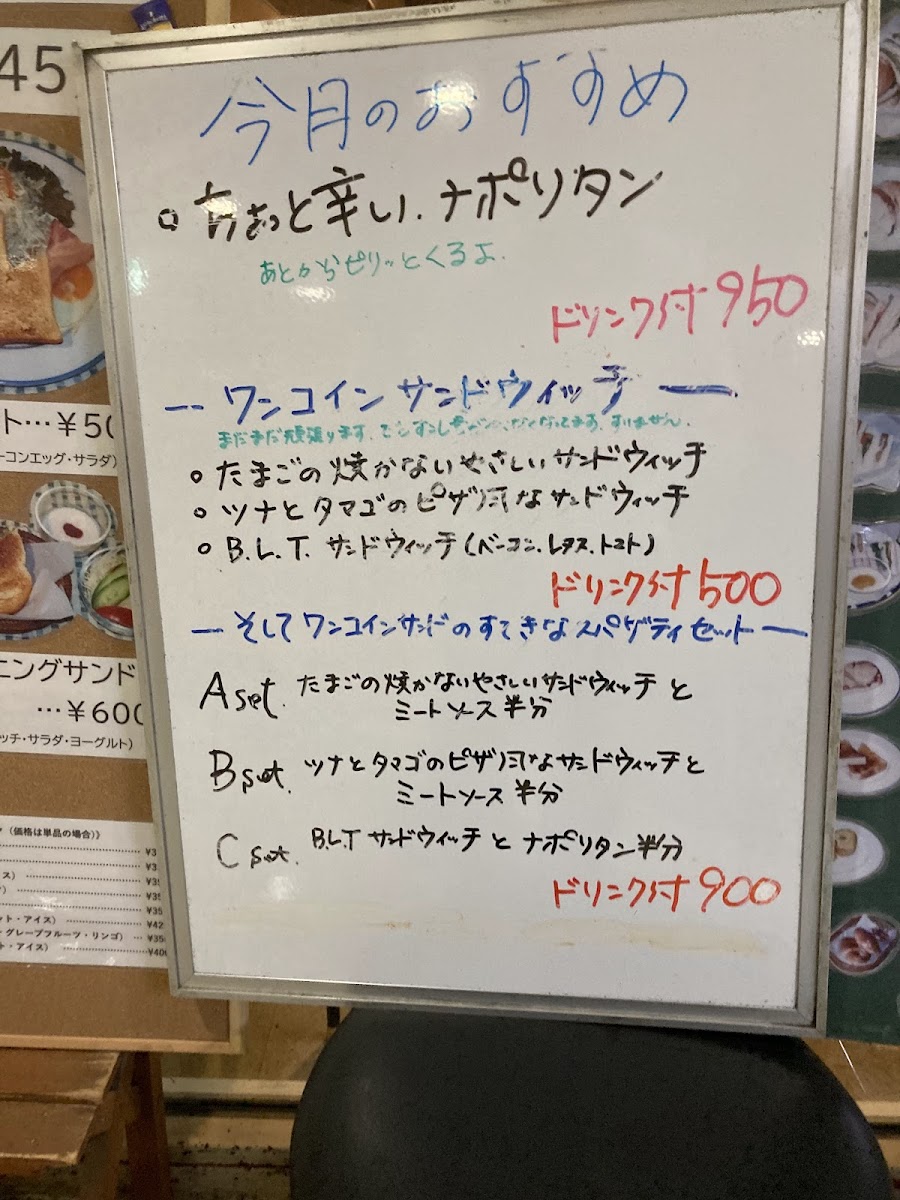 45
今月のおすすめ
○ ちょっと辛い、ナポリタン
あとからピリッとくるよ.
ドリンク付 950
-- ワンコイン サンドウィッチ --
まだまだ頑張ります。
なくなってます。すいません.
○ たまごの焼かないやさしいサンドウィッチ
○ ツナとタマゴのピザ風なサンドウィッチ
○ B.L.T. サンドウィッチ(ベーコン.レタス.トマト)
ドリンク付 500
— そしてワンコインサンドのすてきなスパゲティセット —
A set. たまごの焼かないやさしいサンドウィッチ と
ミートソース 半分
B set. ツナとタマゴのピザ風なサンドウィッチと
ミートソース 半分
C set. B.L.T サンドウィッチ と ナポリタン半分
ドリンク付 900
ト…¥50
ーコンエッグ・サラダ)
ニングサンド
…¥600
ッチ・サラダ・ヨーグルト)
(価格は単品の場合)》
¥3
¥3
ス) ¥35
¥35
¥35
ット・アイス) ¥42
・グレープフルーツ・リンゴ) … ¥35
ト・アイス) ¥40